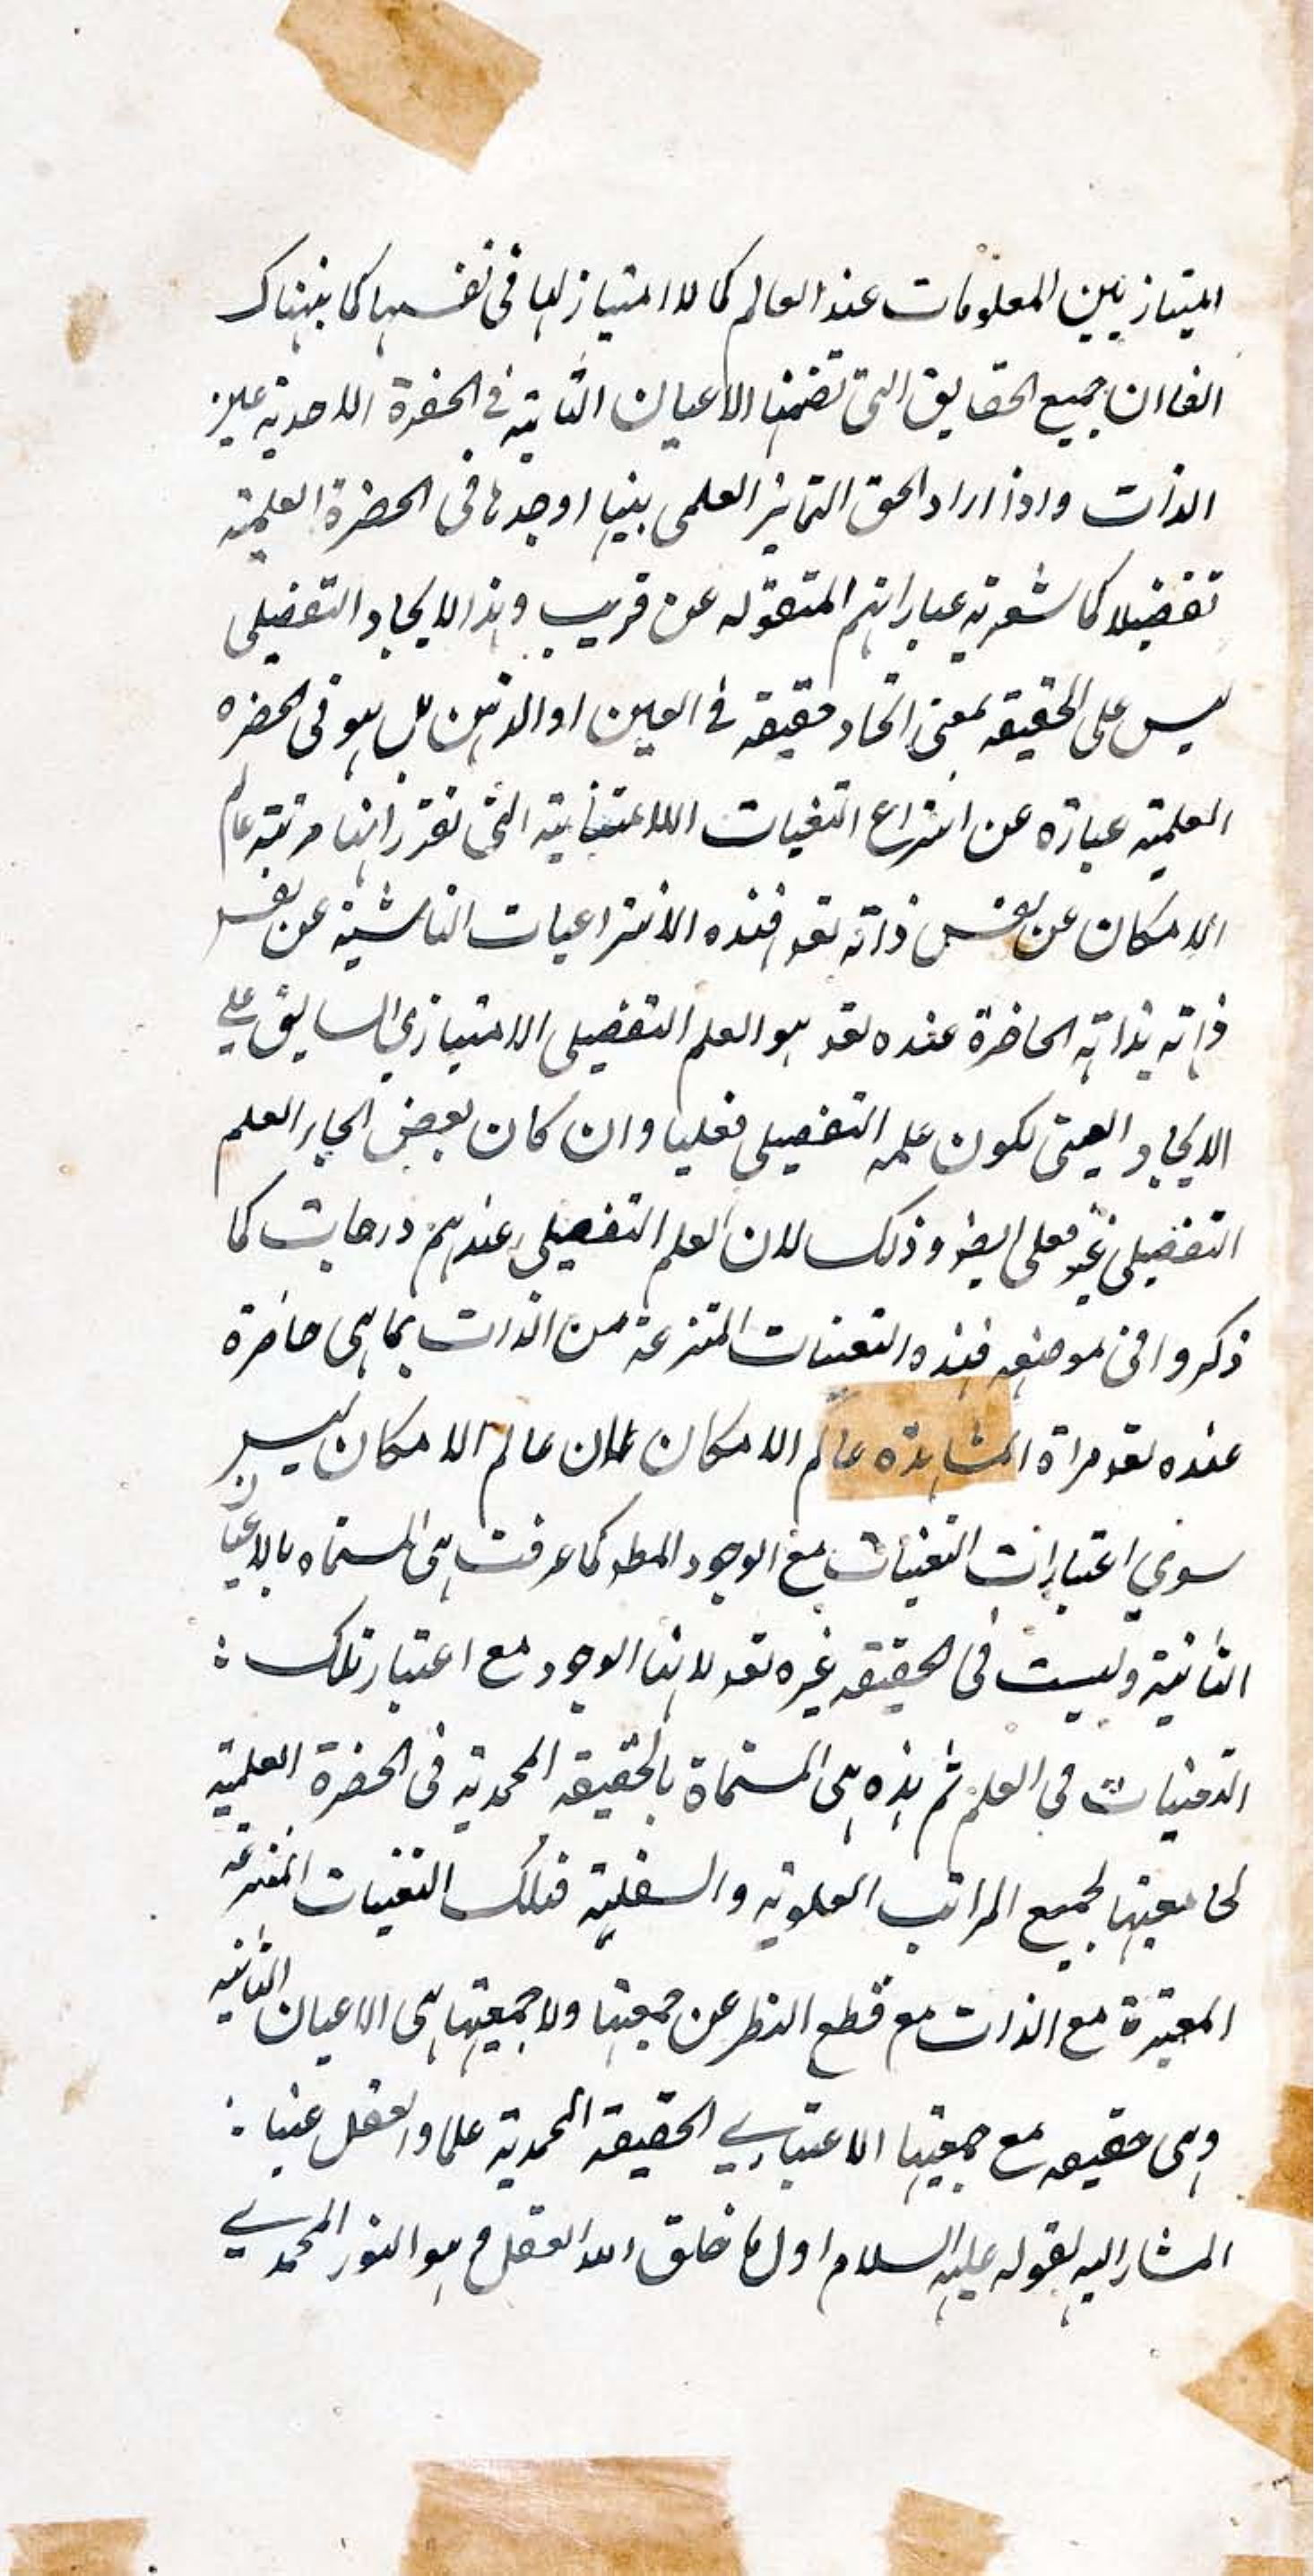 امتياز بين المعلومات عند العالم كما لا امتياز لها في نفسها كما ينبئك
ان جميع الحقايق التى تضمنها الاعيان الثابته فى الحضرة الاحدية عين
الذات واذا اراد الحق التمايز العلمى بينها اوجدها فى الحضرة العلمية
تفضيلا كما شعرته عباراتهم المنقوله عن قريب وهذا الايجاد التفضيلى
ليس على الحقيقه بمعنى اتحاد حقيقه فى العين او الذهن بل هو فى الحضره
العلمية عبارة عن انتزاع التعنيات الاعتبارية التى تقرر انها مرتبة عالم
الامكان عن نفس ذاته تعہ فهذه الانتزاعيات الناشية عن نفس
ذاته بذاته الحاضرة عنده تعہ هو العلم التفصيلى الامتيازي السابق على
الايجاد العينى لكون علمه التفصيلى فعليا وان كان بعض العلم
التفصيلى غير فعلى ايضا وذلك لان العلم التفصيلى عندهم درجات كما
ذكروا فى موضعه فهذه التعينات المنتزعة من الذات بما هى حاضرة
عنده تعہ مراة المشاهدة عالم الامكان لان عالم الامكان ليس
سوي اعتبارات التعينات مع الوجود المط كما عرفت هى المسماه بالاعيان
الثابتة وليست فى الحقيقه غيره تعہ لانها الوجود مع اعتبار تلك :
التعنيات فى العلم ثم هذه هى المسماة بالحقيقه المحمدية فى الحضرة العلمية
لجامعيتها لجميع المراتب العلوية والسفلية فتلك التعنيات المنتزعة
المعتبرة مع الذات مع قطع النظر عن جمعيتها ولا جمعيتها هى الاعيان الثابته
وهى حقيقه مع جمعيتها الاعتباري الحقيقة المحمدية علما والعقل عينا :
المشار اليه بقوله عليه السلام اول ما خلق الله العقل و هو النور المحمدي